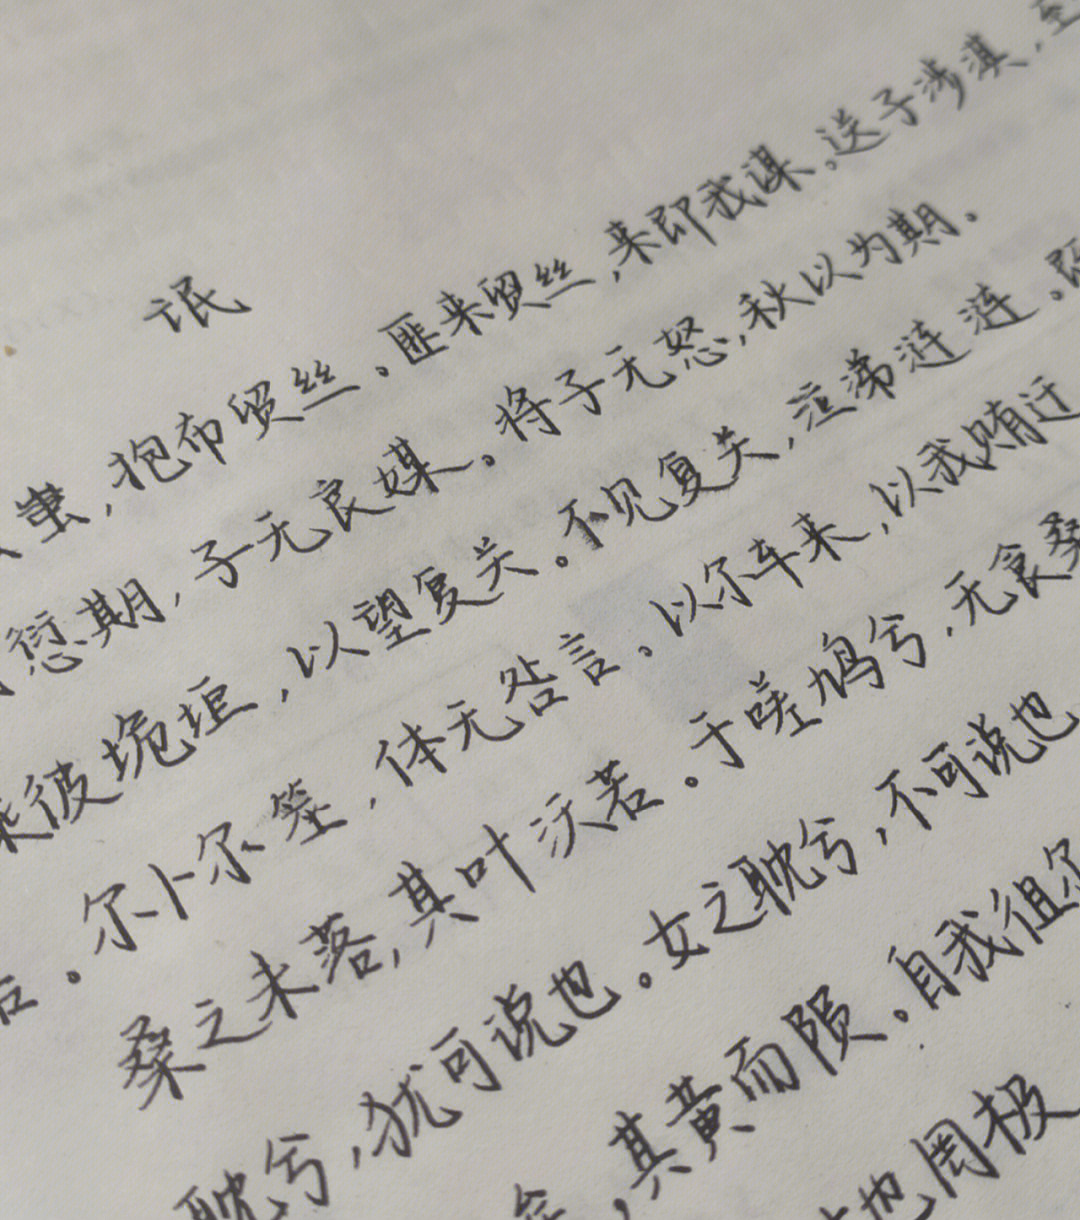 氓
蚩，抱布贸丝。匪来贸丝，来即我谋。送子涉淇，至
愆期，子无良媒。将子无怒，秋以为期。
乘彼垝垣，以望复关。不见复关，泣涕涟涟。既
言。尔卜尔筮，体无咎言。以尔车来，以我贿迁
桑之未落，其叶沃若。于嗟鸠兮，无食桑
耽兮，犹可说也。女之耽兮，不可说也
，其黄而陨。自我徂尔
也罔极